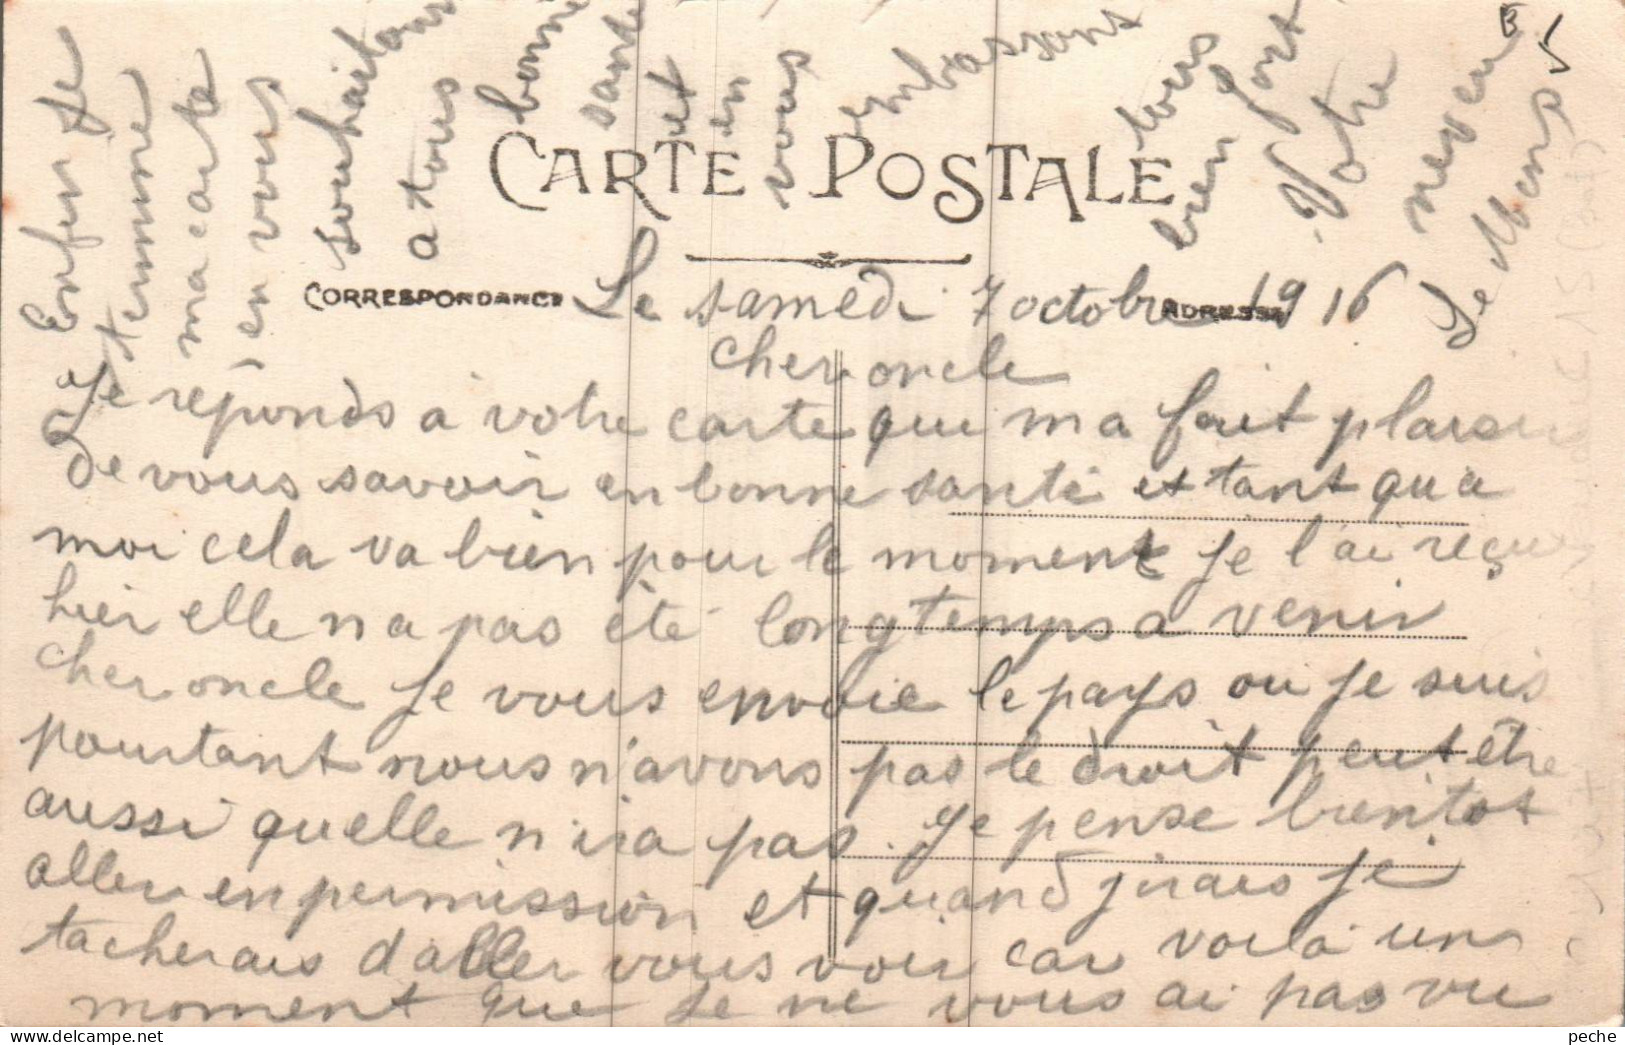 CARTE POSTALE
CORRESPONDANCE
ADRESSE
Le samedi 7 octobre 1916
cher oncle
Je réponds à votre carte qui ma fait plaisir
de vous savoir en bonne santé et tant qua
moi cela va bien pour le moment je l'ai reçue
hier elle na pas été longtemps a venir
cher oncle je vous envoie le pays ou je suis
pourtant nous n'avons pas le droit peut être
aussi quelle n'ira pas. Je pense bientot
aller en permission et quand j'irais je
tacherais d'aller vous voir car voilà un
moment que je ne vous ai pas vu
Enfin je
termine
ma carte
en vous
souhaitant
a tous
bonne
santé
et
en
vous
embrassons
tous
bien fort
Votre
neveu
B 5
peche